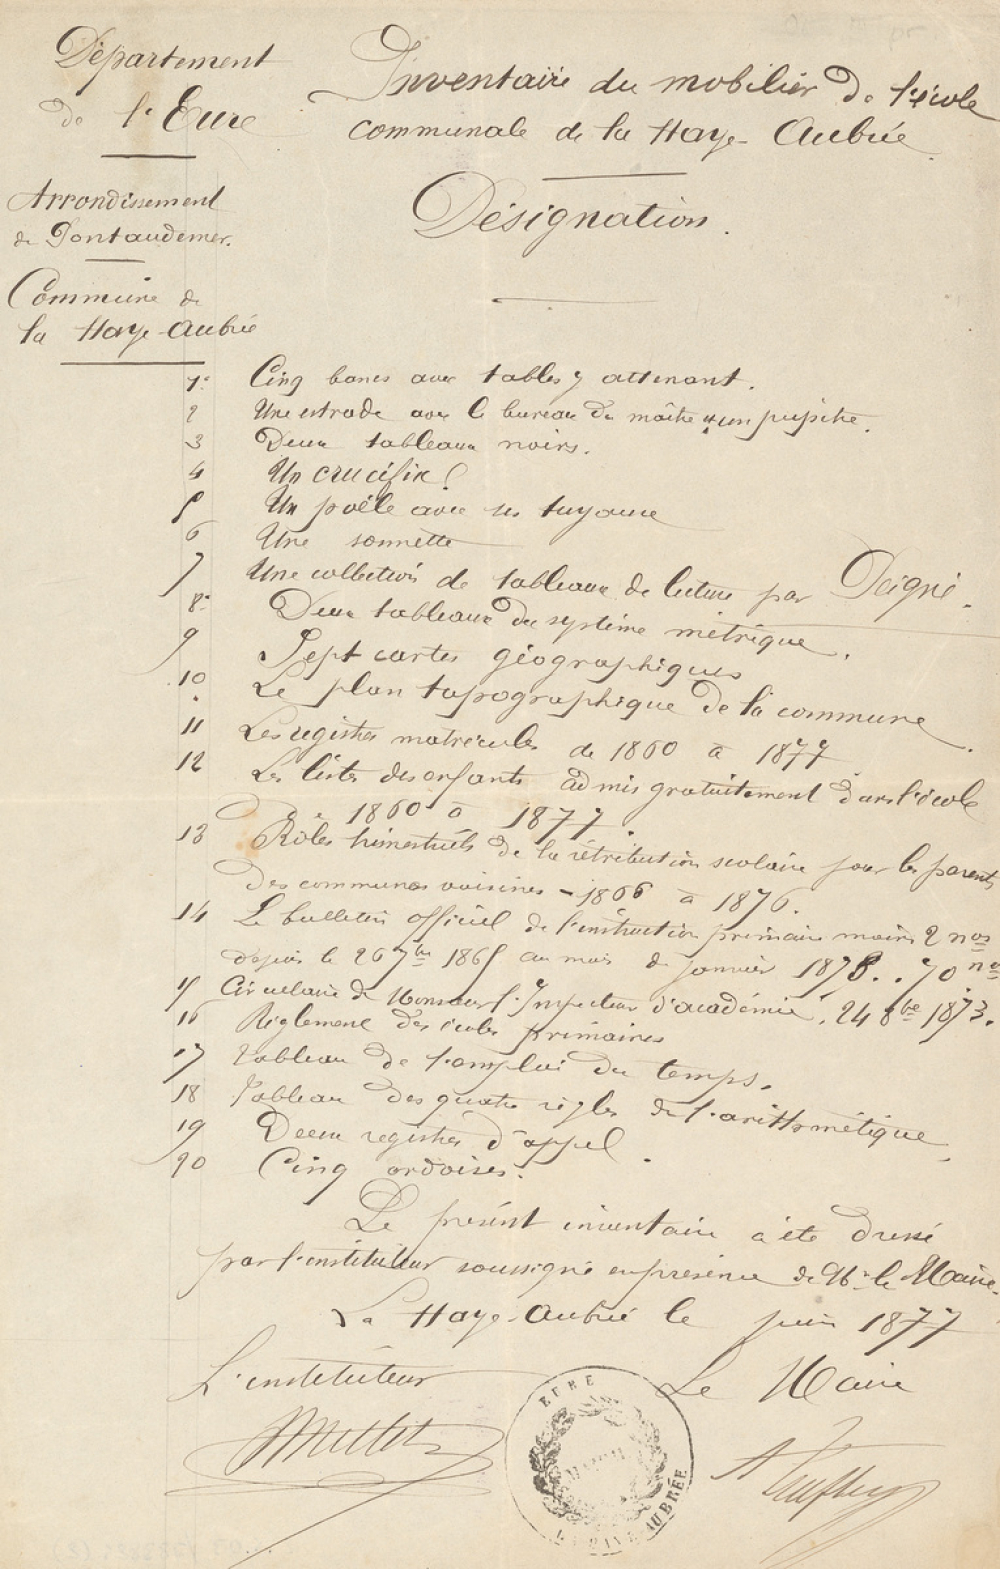 Département
de l'Eure
Arrondissement
de Pontaudemer.
Commune de
la Haye-Aubrée
Inventaire du mobilier de l'école
communale de la Haye-Aubrée.
Désignation.
1° Cinq bancs avec tables y attenant.
2 Une estrade avec le bureau du maître et un pupitre.
3 Deux tableaux noirs.
4 Un crucifix
5 Un poêle avec ses tuyaux
6 Une sonnette
7 Une collection de tableaux de lecture par Peigné.
8° Deux tableaux du système métrique.
9 Sept cartes géographiques
10 Le plan topographique de la commune.
11 Les registres matricules de 1860 à 1877
12 Les listes des enfants admis gratuitement dans l'école
de 1860 à 1877.
13 Rôles trimestriels de la rétribution scolaire pour les parents
des communes voisines - 1866 à 1876.
14 Le bulletin officiel de l'instruction primaire moins 2 nos
depuis le 26 7bre 1865 au mois de janvier 1878. . 70 nos
15 Circulaire de Monsieur l'Inspecteur d'académie. 24 8bre 1873.
16 Règlement des écoles primaires
17 Tableau de l'emploi du temps.
18 Tableau des quatre règles de l'arithmétique.
19 Deux registres d'appel.
20 Cinq ardoises.
Le présent inventaire a été dressé
par l'instituteur soussigné en présence de Mr le Maire.
La Haye-Aubrée le juin 1877
L'instituteur Le Maire
EURE
MAIRIE
LA HAYE AUBRÉE